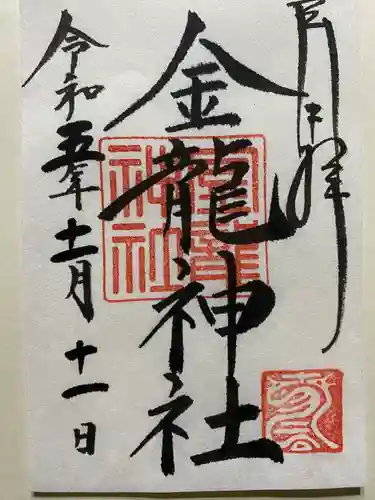 拝
金龍神社
令和五年十一月十一日
金龍
神社